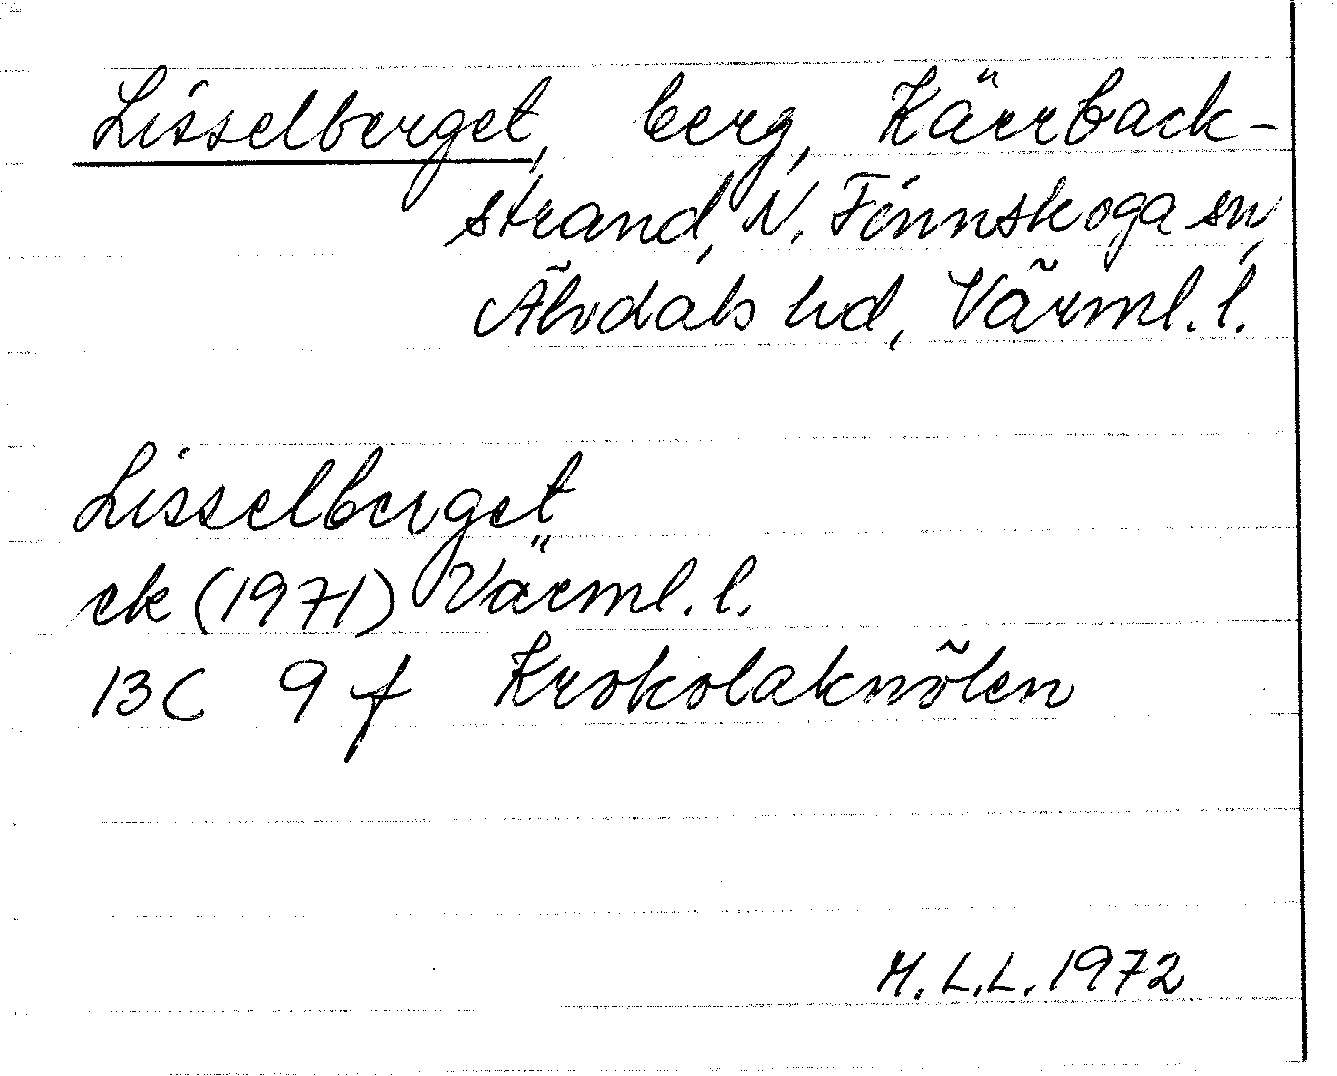 Lisselberget, berg, Kärrback-
strand, N. Finnskoga sn,
Älvdals hd, Värml. l.
Lisselberget
ek (1971) Värml. l.
13C 9f Krokolaknölen
M.L.L. 1972